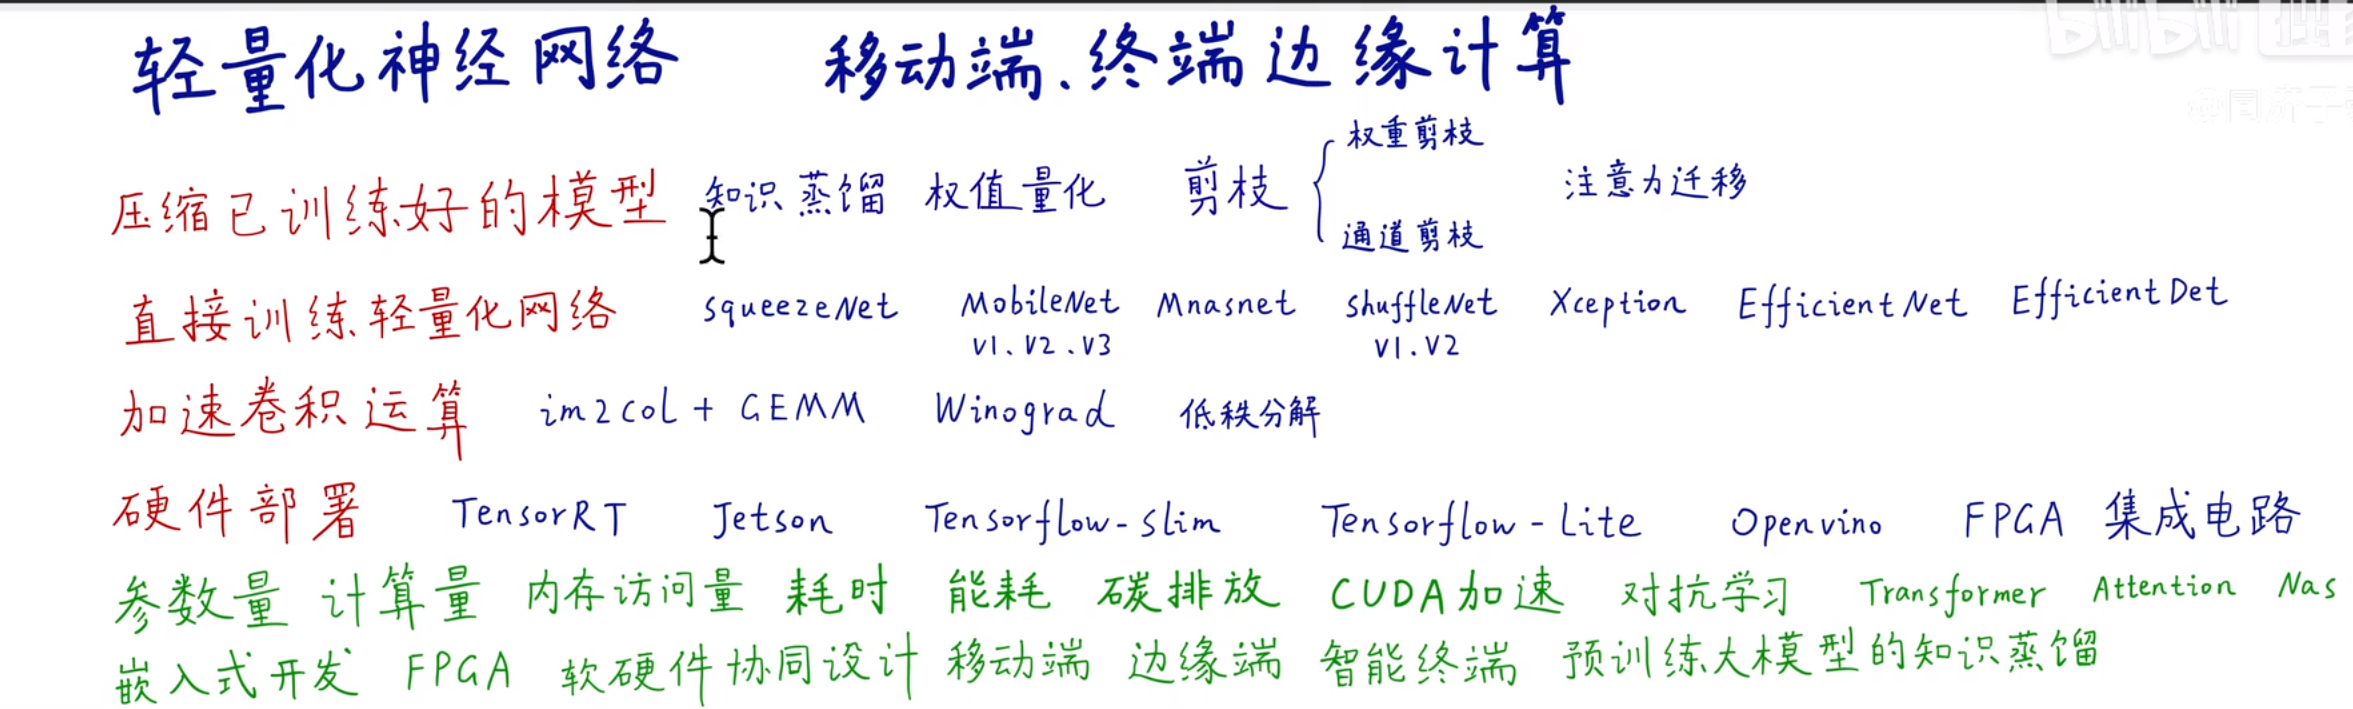 轻量化神经网络 移动端、终端边缘计算
权重剪枝
压缩已训练好的模型 知识蒸馏 权值量化 剪枝 注意力迁移
通道剪枝
直接训练轻量化网络 SqueezeNet MobileNet Mnasnet ShuffleNet Xception EfficientNet EfficientDet
V1、V2、V3 V1、V2
加速卷积运算 im2col + GEMM Winograd 低秩分解
硬件部署 TensorRT Jetson Tensorflow-slim Tensorflow-Lite Openvino FPGA 集成电路
参数量 计算量 内存访问量 耗时 能耗 碳排放 CUDA加速 对抗学习 Transformer Attention Nas
嵌入式开发 FPGA 软硬件协同设计 移动端 边缘端 智能终端 预训练大模型的知识蒸馏
bilibili
@同济子